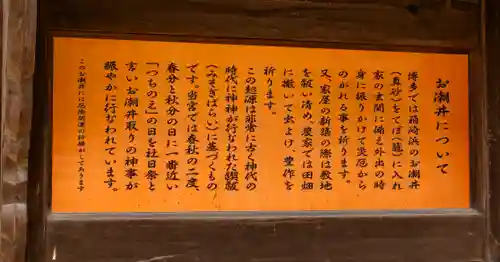 お潮井について
博多では箱崎浜のお潮井
(真砂)をてぼ(籠)に入れ
家の玄関に備え外出の時
身に振りかけて災厄から
のがれる事を祈ります。
又、家屋の新築の際は敷地
を祓い清め、農家では田畑
に撒いて虫よけ、豊作を
祈ります。
この起源は非常に古く神代の
時代に神々が行なわれた禊祓
(みそぎはらい)に基づくもの
です。当宮では春秋の二度
春分と秋分の日に一番近い
「つちのえ」の日を社日祭と
言いお潮井取りの神事が
賑やかに行なわれています。
このお潮井には危除開運の祈願がしてあります